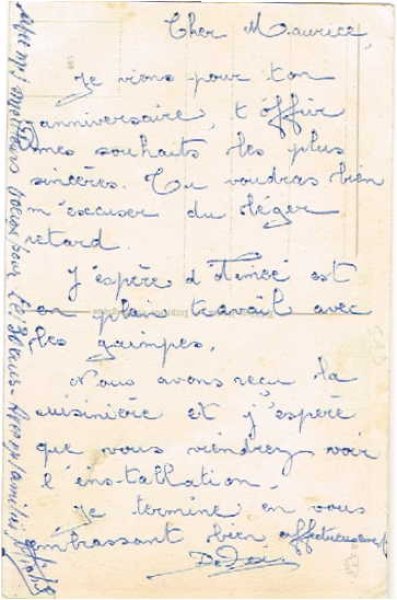 Cher Maurice,
Je viens pour ton
anniversaire, t'offrir
mes souhaits les plus
sincères. Tu voudras bien
m'excuser du léger
retard.
J'espère d'Aimée est
en plein travail avec
les guimpes.
Nous avons reçu la
cuisinière et j'espère
que vous viendrez voir
l'ins-tallation.
Je termine en vous
embrassant bien affectueuse
meilleurs voeux pour